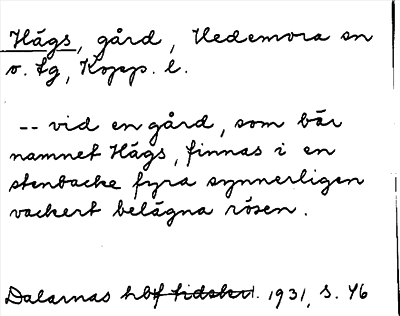 Hågs, gård, Hedemora sn
o. tg, Kopp. l.
-- vid en gård, som bär
namnet Hågs, finnas i en
stenbacke fyra synnerligen
vackert belägna rösen.
Dalarnas hbf tidskr. 1931, s. 46